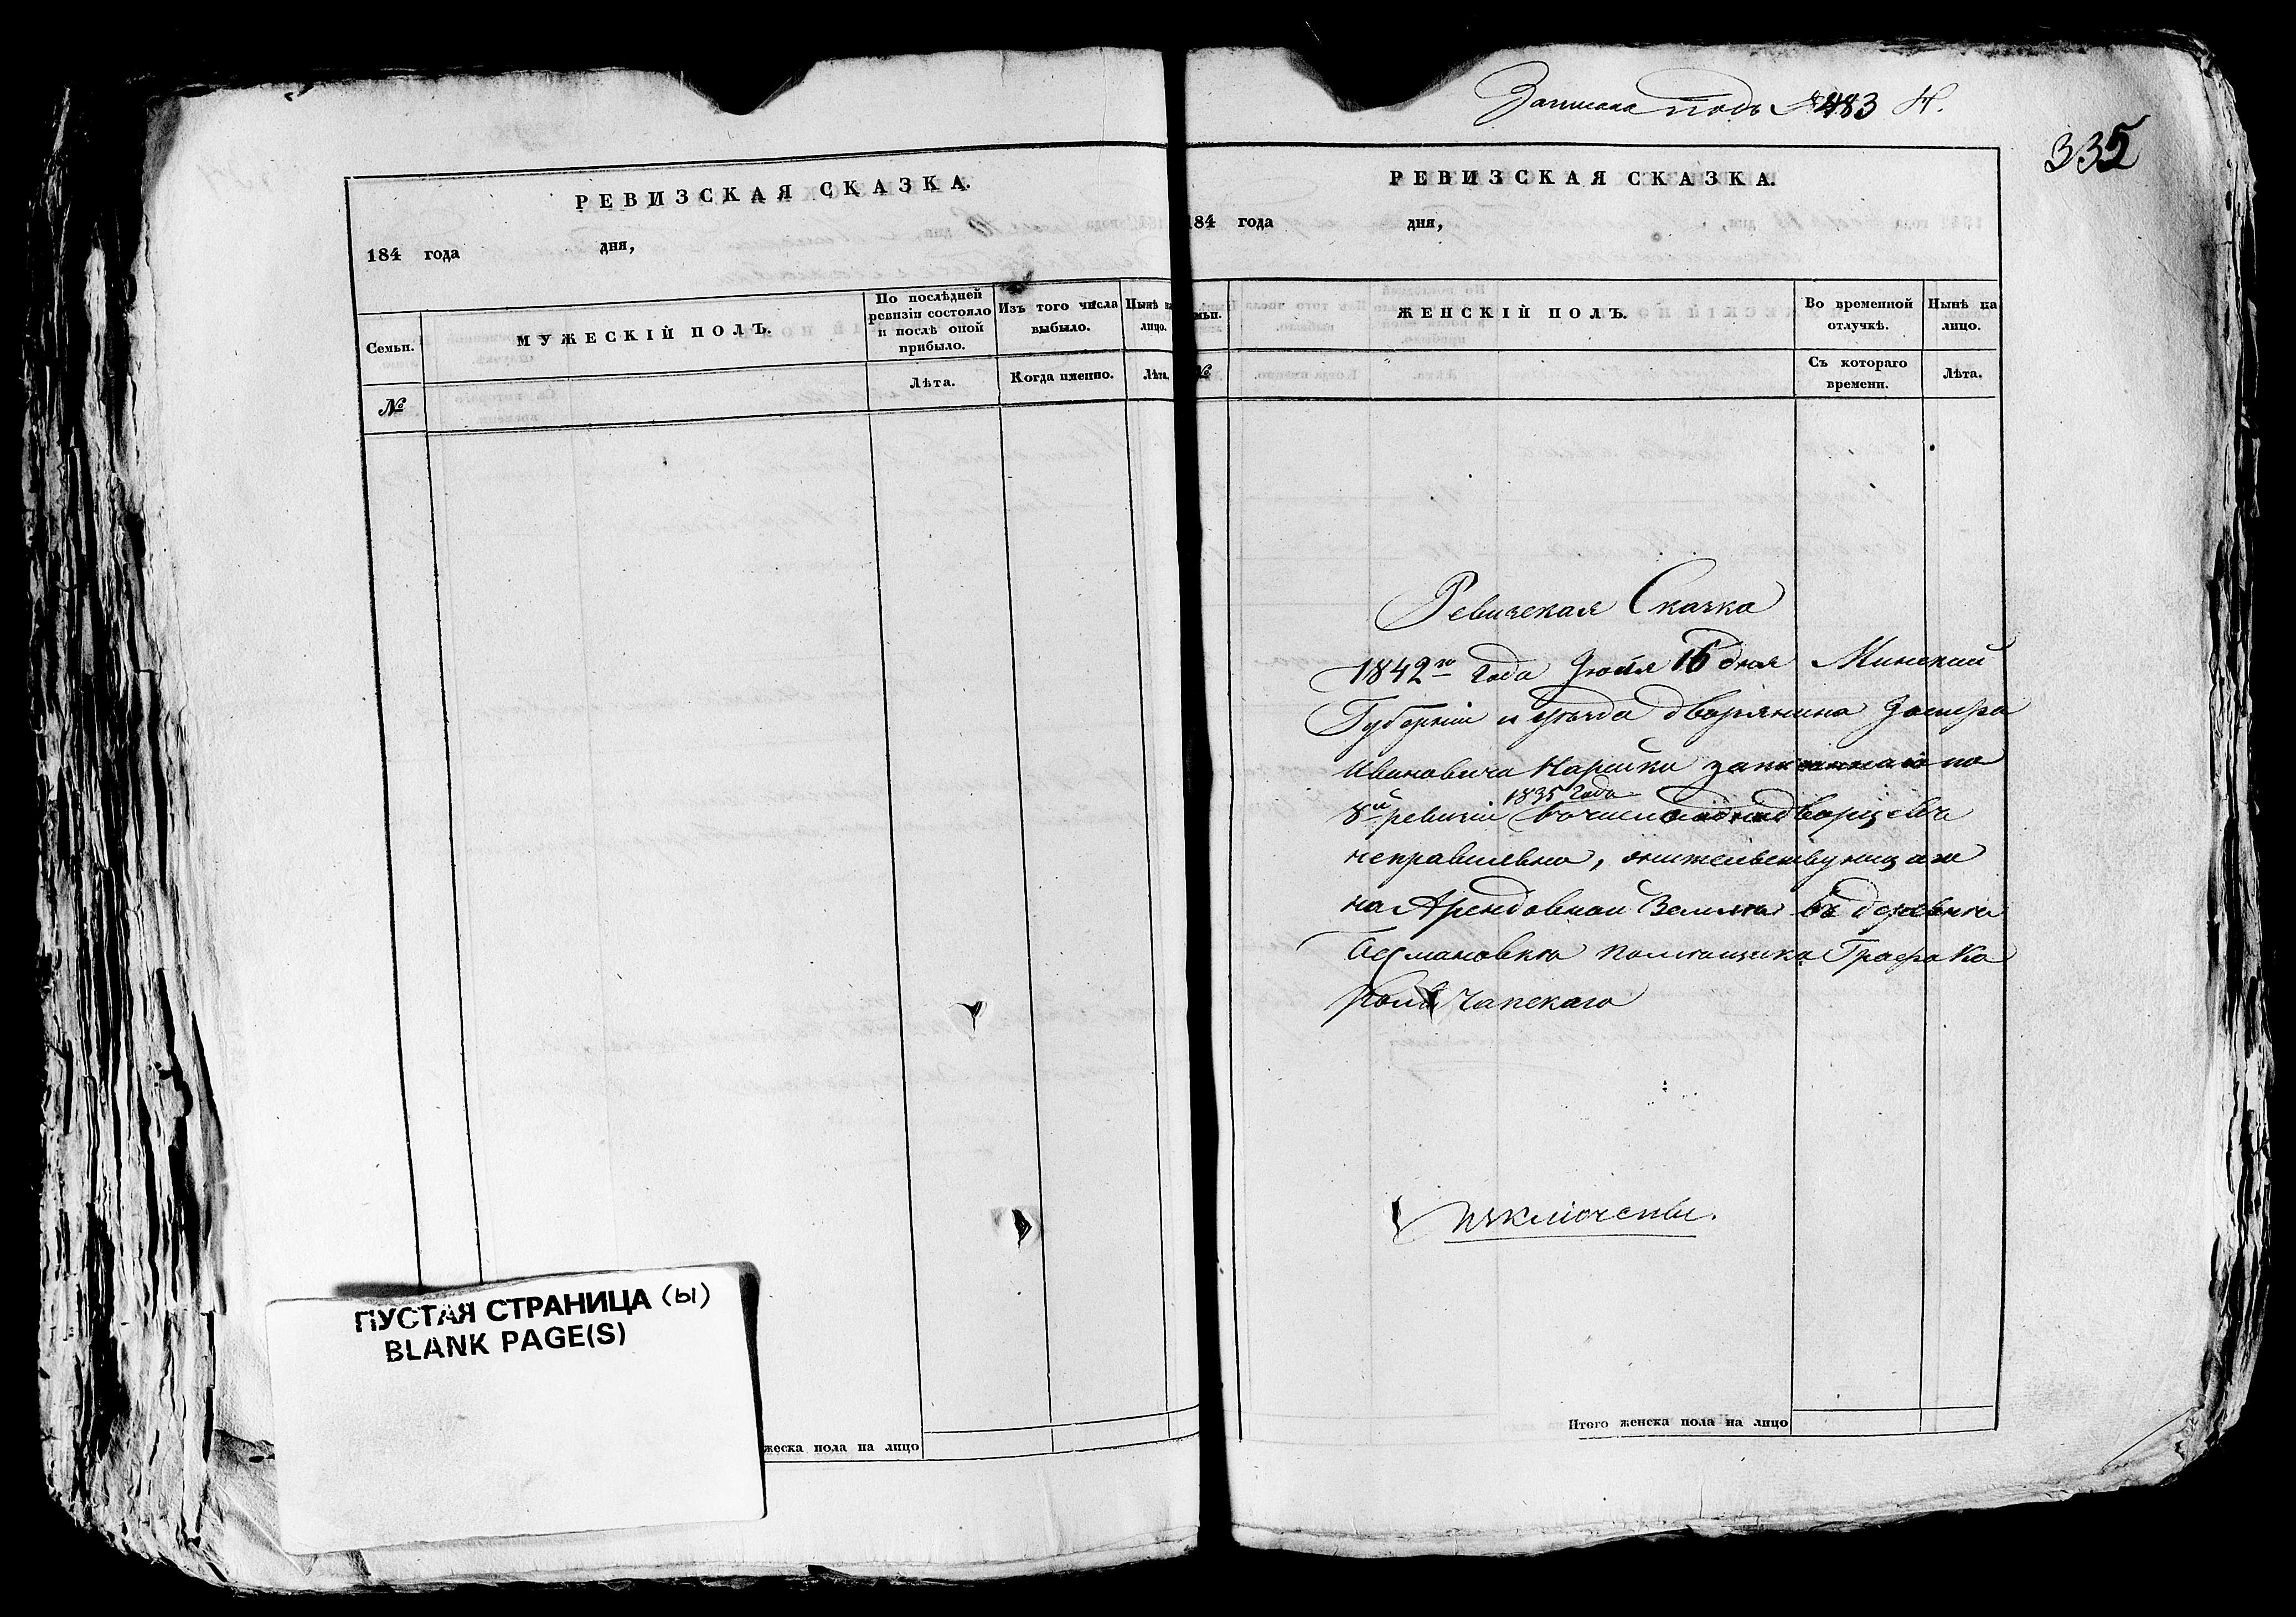 РЕВИЗСКАЯ СКАЗКА.
184 года дня,
Семьи.
МУЖЕСКІЙ ПОЛЪ.
По послѣдней
ревизіи состояло
и послѣ оной
прибыло.
Изъ того числа
выбыло.
Нынѣ на
лицо.
№
Лѣта.
Когда именно.
Лѣта.
ПУСТАЯ СТРАНИЦА (ы)
BLANK PAGE(S)
жеска пола на лицо
Записана подъ №483 Н.
335
РЕВИЗСКАЯ СКАЗКА.
184 года дня,
мьи.
ЖЕНСКІЙ ПОЛЪ.
Во временной
отлучкѣ.
Нынѣ на
лицо.
№
Съ котораго
времени.
Лѣта.
Ревизская Сказка
1842го Года Іюля 16 дня Минской
Губерніи и уѣзда дворянина
Ивановича записаннаго по
8й ревизіи 1835 Года въ число однодворцевъ
неправильно, жительствующаго
на Арендовной Землѣ въ деревнѣ
помѣщика Графа Ка
роля Чапскаго
изключены.
Итого женска пола на лицо